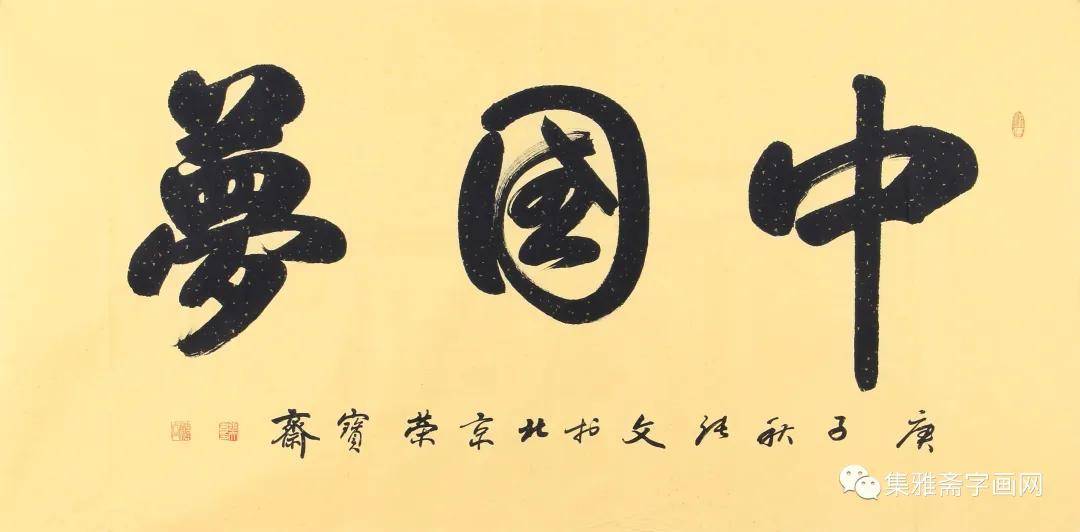 中國夢
庚子秋张文於北京荣寶齋
集雅斋字画网